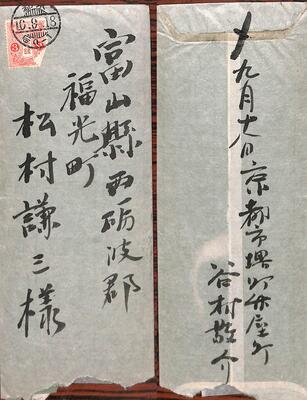 10.9.18
富山縣西砺波郡
福光町
松村謙三様
〆九月十八日京都市堺町竹屋町
谷村敬介